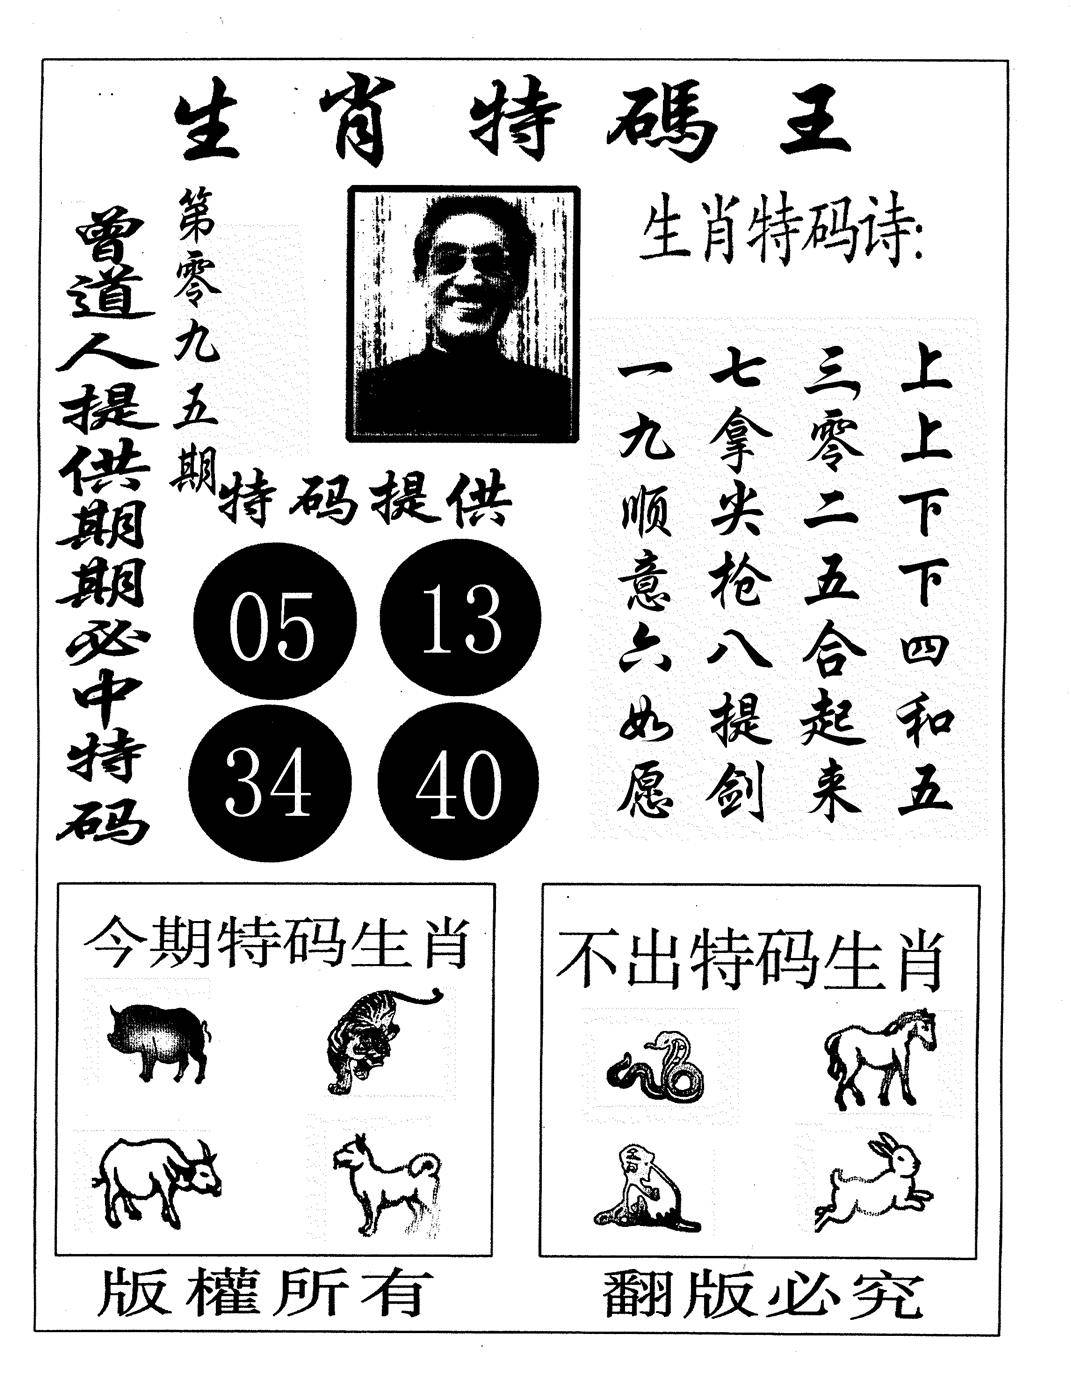 生肖特碼王
曾道人提供期期必中特码
第零九五期
生肖特码诗:
上上下下四和五
三零二五合起来
七拿尖枪八提剑
一九顺意六如愿
特码提供
05 13
34 40
今期特码生肖
不出特码生肖
版權所有
翻版必究